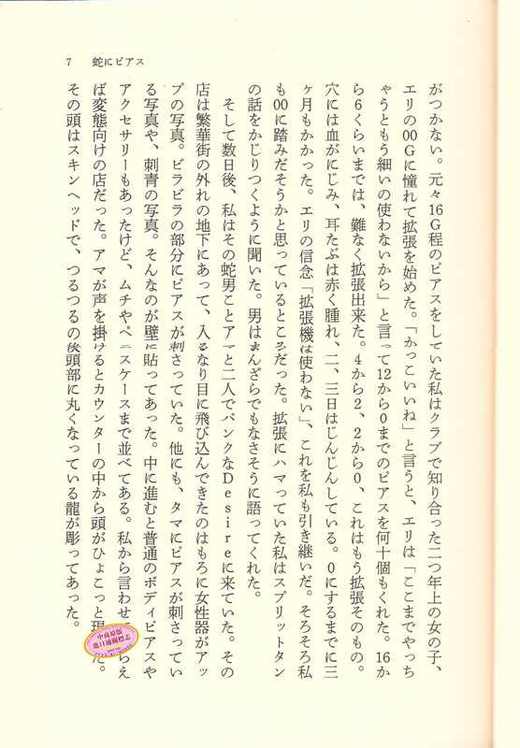 7　蛇にピアス
がつかない。元々16G程のピアスをしていた私はクラブで知り合った二つ年上の女の子、
エリの00Gに憧れて拡張を始めた。「かっこいいね」と言うと、エリは「ここまでやっち
ゃうともう細いの使わないから」と言って12から0までのピアスを何十個もくれた。16か
ら6くらいまでは、難なく拡張出来た。4から2、2から0、これはもう拡張そのもの。
穴には血がにじみ、耳たぶは赤く腫れ、二、三日はじんじんしている。0にするまでに三
ヶ月もかかった。エリの信念「拡張機は使わない」、これを私も引き継いだ。そろそろ私
も00に踏みだそうかと思っているところだった。拡張にハマっていた私はスプリットタン
の話をかじりつくように聞いた。男はまんざらでもなさそうに語ってくれた。
　そして数日後、私はその蛇男ことアマと二人でパンクなDesireに来ていた。その
店は繁華街の外れの地下にあって、入るなり目に飛び込んできたのはもろに女性器がアッ
プの写真。ビラビラの部分にピアスが刺さっていた。他にも、タマにピアスが刺さってい
る写真や、刺青の写真。そんなのが壁に貼ってあった。中に進むと普通のボディピアスや
アクセサリーもあったけど、ムチやペニスケースまで並べてある。私から言わせ らえ
ば変態向けの店だった。アマが声を掛けるとカウンターの中から頭がひょこっと現 た。
その頭はスキンヘッドで、つるつるの後頭部に丸くなっている龍が彫ってあった。
中商原版
進口通關標志